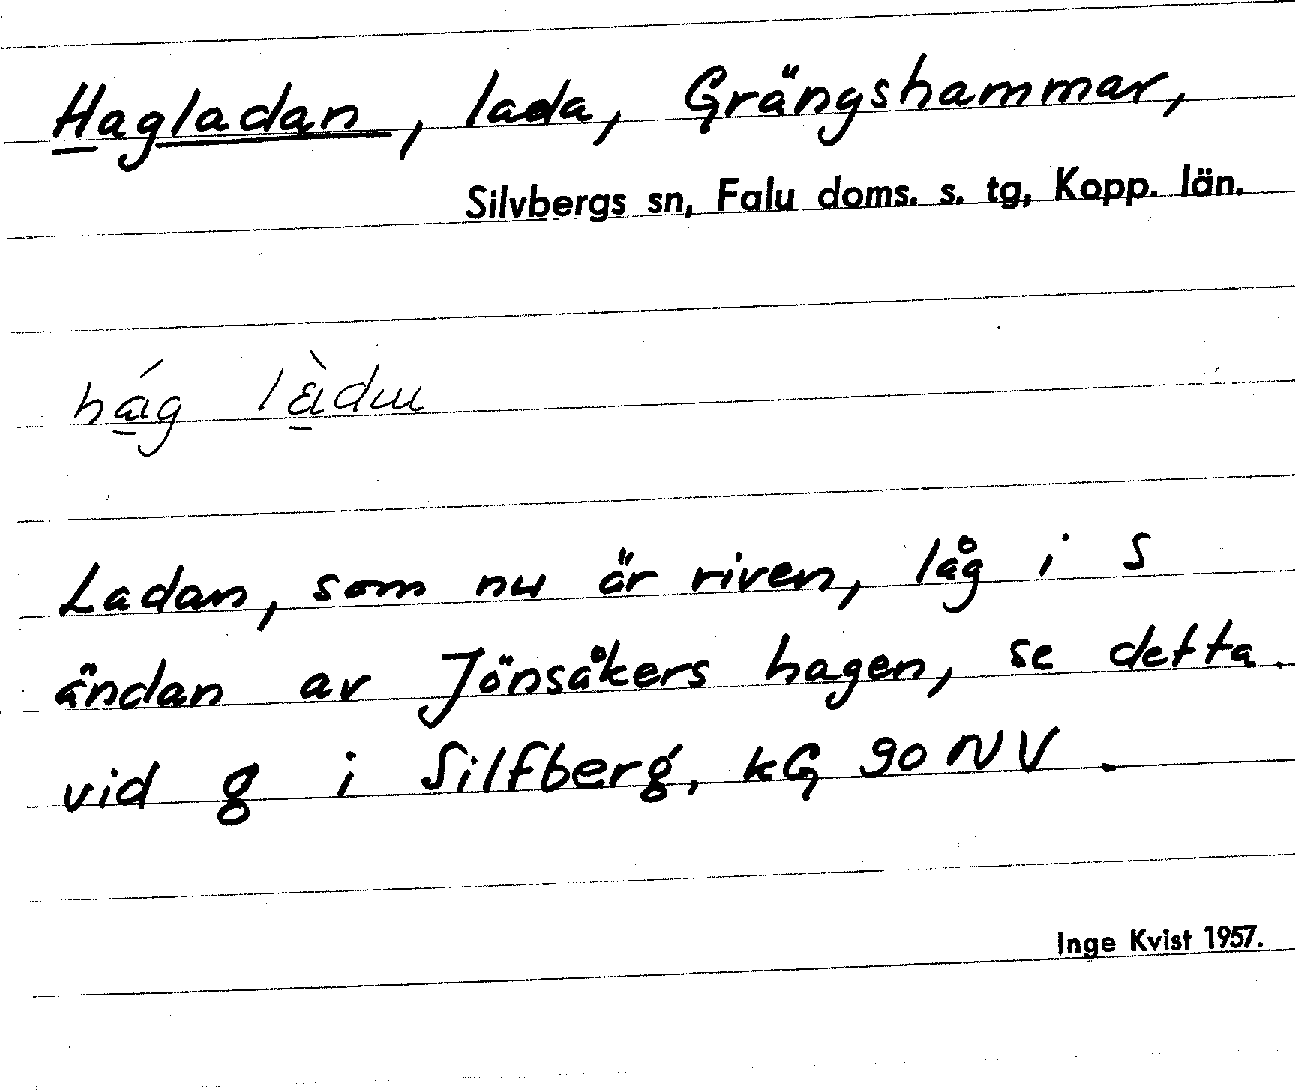 Hagladan, lada, Grängshammar,
Silvbergs sn, Falu doms. s. tg, Kopp. län.
hág làdɯ
Ladan, som nu är riven, låg i S
ändan av Jönsåkers hagen, se detta.
vid g i Silfberg, kG 90 NV.
Inge Kvist 1957.